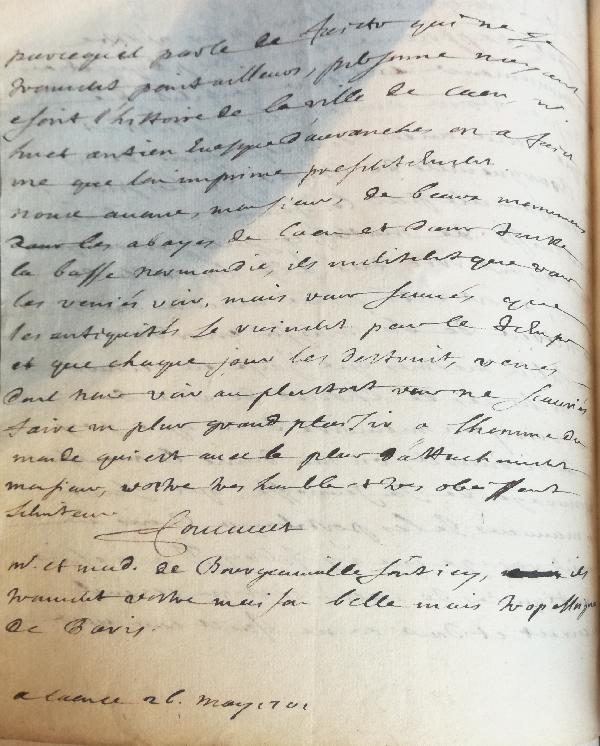 parcequil parle de faicts qui ne se
trouuent point ailleurs, personne n'ayant
escrit l'histoire de la ville de Caen, ni
huet antien Euesque d'auranches en a fait
une que lon imprime presentement.
nous auons, monsieur, de beaux monumens
dans les abayes de Caen et dans toute
la basse normandie, ils meritent que vous
les veniés voir, mais vous scaués que
les antiquités se ruinent par le temps
et que chaque jour les destruit, venés
donc nous voir au plustost vous ne scauriés
faire un plus grand plaisir a lhomme du
monde qui est auec le plus d'attachement
monsieur, vostre tres humble et tres obeissant
seruiteur
Foucault
mr. et mad. de Bourgeauuille sont icy, ils
trouuent vostre maison belle mais trop esloignée
de Paris.
a Caen ce 26. may 1701